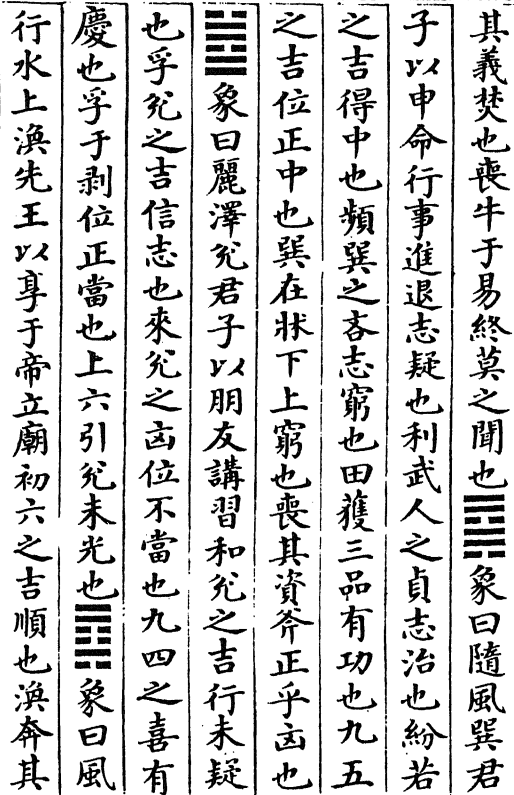 其義焚也喪牛于易終莫之聞也䷸象曰隨風巽君
子以申命行事進退志疑也利武人之貞志治也紛若
之吉得中也頻巽之吝志窮也田獲三品有功也九五
之吉位正中也巽在牀下上窮也喪其資斧正乎凶也
䷹象曰麗澤兊君子以朋友講習和兊之吉行未疑
也孚兊之吉信志也來兊之凶位不當也九四之喜有
慶也孚于剥位正當也上六引兊未光也䷺象曰風
行水上渙先王以享于帝立廟初六之吉順也渙奔其